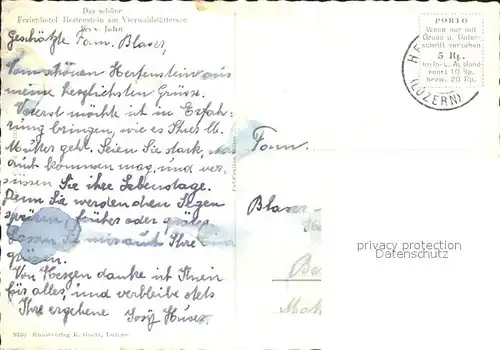 Das schöne
Ferienhotel Hertenstein am Vierwaldstättersee
Bes. v. Jahn
Geschätzte Fam. Blaser,
Vom schönen Hertenstein aus
meine herzlichsten Grüsse.
Vorerst möchte ich in Erfah-
rung bringen, wie es Ihrer lb.
Mutter geht. Seien Sie stark, was
auch kommen mag, und ver-
süssen Sie ihre Lebenstage.
Denn Sie werden den Segen
spüren, früher oder später.
Lassen Sie mir auch Ihre
grüssen.
Von Herzen danke ich Ihnen
für alles, und verbleibe stets
Ihre ergebene
PORTO
Wenn nur mit
Gruss u. Unter-
schrift versehen
5 Rp.
In- u. Ausland
sonst 10 Rp.
bezw. 20 Rp.
HE
(LUZERN)
Fam.
Blaser -
Be
privacy protection
Datenschutz
Kunstverlag E. Goetz, Luzern.